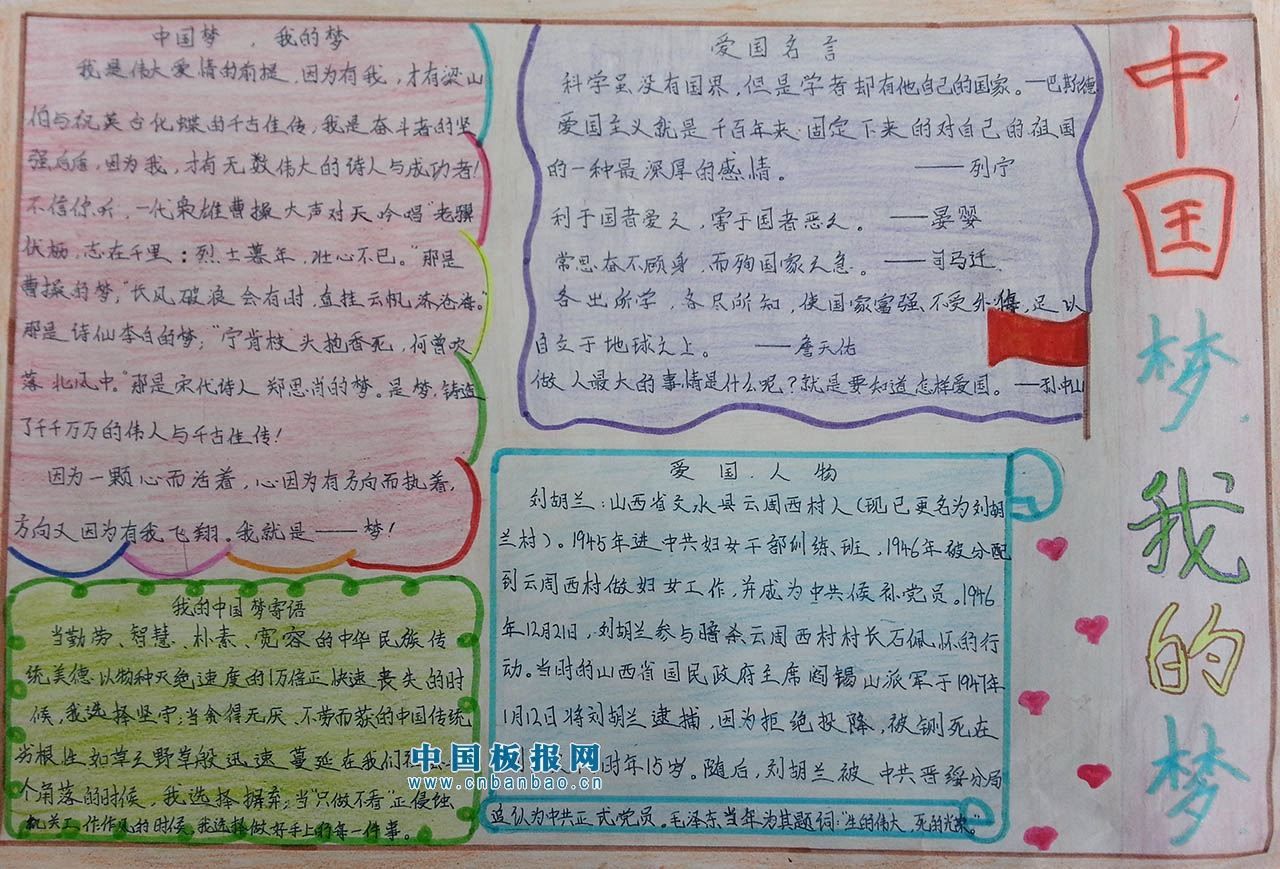 中国梦，我的梦
我是伟大爱情的前提，因为有我，才有梁山
伯与祝英台化蝶的千古佳传，我是奋斗者的坚
强后盾，因为我，才有无数伟大的诗人与成功者！
不信你听，一代枭雄曹操大声对天吟唱“老骥
伏枥，志在千里；烈士暮年，壮心不已。”那是
曹操的梦；“长风破浪会有时，直挂云帆济沧海。”
那是诗仙李白的梦；“宁肯枝头抱香死，何曾吹
落北风中。”那是宋代诗人郑思肖的梦。是梦，铸造
了千千万万的伟人与千古佳传！
因为一颗心而活着，心因为有方向而执着，
方向又因为有我飞翔。我就是——梦！
爱国名言
科学虽没有国界，但是学者却有他自己的国家。—巴斯德
爱国主义就是千百年来固定下来的对自己的祖国
的一种最深厚的感情。——列宁
利于国者爱之，害于国者恶之。——晏婴
常思奋不顾身，而殉国家之急。——司马迁
各出所学，各尽所知，使国家富强不受外侮，足以
自立于地球之上。——詹天佑
做人最大的事情是什么呢？就是要知道怎样爱国。—孙中山
我的中国梦寄语
当勤劳、智慧、朴素、宽容的中华民族传
统美德以物种灭绝速度的1万倍正快速丧失的时
候，我选择坚守；当贪得无厌、不劳而获的中国传统
劣根性如草之野草般迅速蔓延在我们
个角落的时候，我选择摒弃；当“只做不看”正侵蚀
机关工作作风的时候，我选择做好手上的每一件事。
爱国人物
刘胡兰：山西省文水县云周西村人（现已更名为刘胡
兰村）。1945年进中共妇女干部训练班，1946年被分配
到云周西村做妇女工作，并成为中共候补党员。1946
年12月21日，刘胡兰参与暗杀云周西村村长石佩怀的行
动。当时的山西省国民政府主席阎锡山派军于1947年
1月12日将刘胡兰逮捕，因为拒绝投降，被铡死在
时年15岁。随后，刘胡兰被中共晋绥分局
追认为中共正式党员。毛泽东当年为其题词：“生的伟大，死的光荣。”
中国梦我的梦
中国板报网
www.cnbanbao.cn